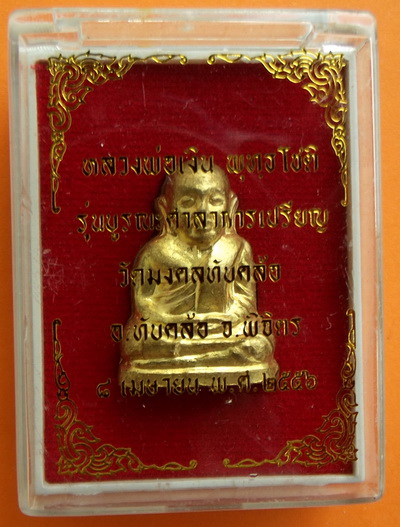 หลวงพ่อเงิน พุทธโชติ
รุ่นบูรณะศาลาการเปรียญ
วัดมงคลทับคล้อ
อ.ทับคล้อ จ.พิจิตร
๘ เมษายน พ.ศ.๒๕๕๖